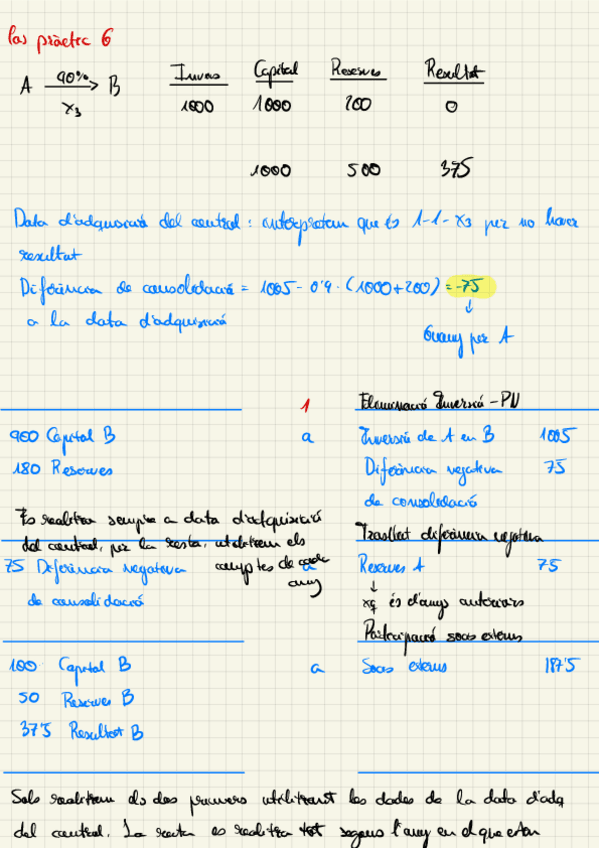 Cas pràctic 6
A 90% → B X3
Invers Capital Reserves Resultat
1000 1000 200 0
1000 500 375
Data d'adquisició del control: interpretem que és 1-1-X3 per no haver
resultat
Diferència de consolidació = 1005 - 0'9 · (1000+200) = -75
a la data d'adquisició
↓
Guany per A
1 Eliminació Inversió - PN
900 Capital B a Inversió de A en B 1005
180 Reserves Diferència negativa 75
de consolidació
Es realitza sempre a data d'adquisició
del control, per la resta, utilitzem els
comptes de cada
any
Trasllat diferència negativa
75 Diferència negativa a Reserves A 75
de consolidació
↓
xq és d'anys anteriors
Participació socis externs
100 Capital B a Socis externs 187'5
50 Reserves B
37'5 Resultat B
Sols realitzem els dos primers utilitzant les dades de la data d'adq
del control. La resta es realitza tot segons l'any en el que estem